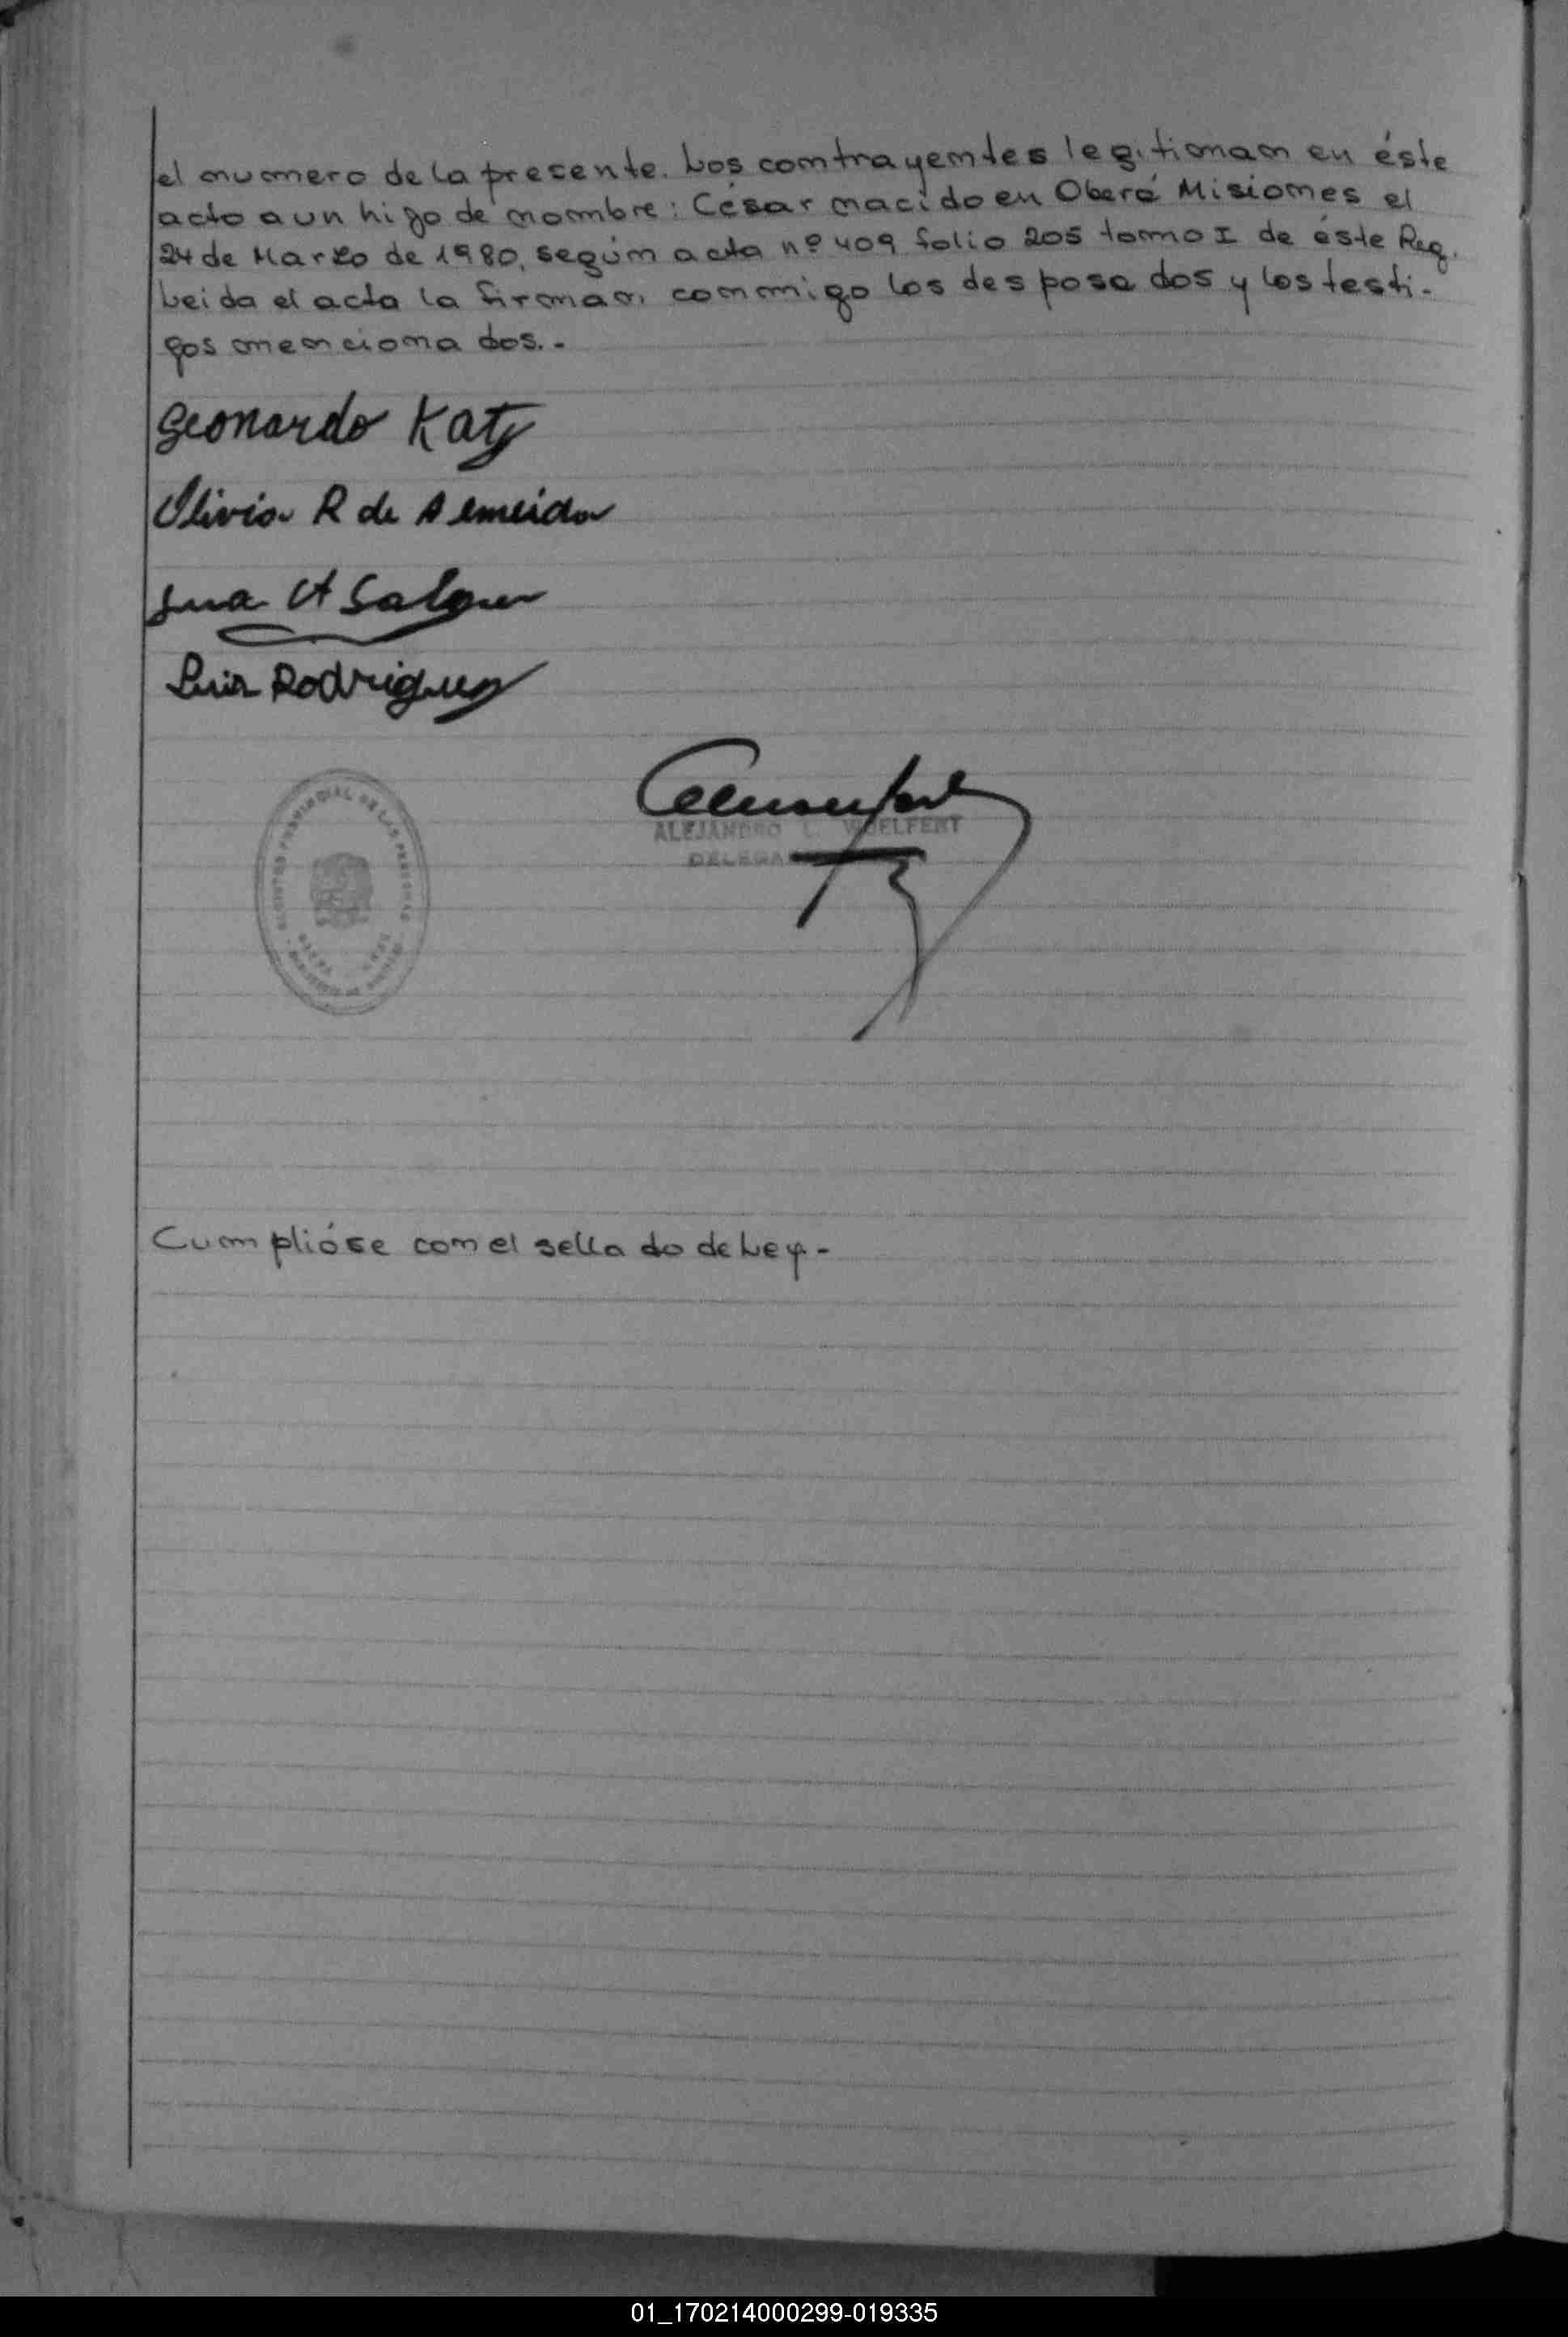 el numero de la presente. Los contrayentes legitiman en éste
acto a un hijo de nombre: César nacido en Oberá Misiones el
24 de Marzo de 1980, según acta nº 409 folio 205 tomo I de éste Reg.
Leida el acta la firman conmigo los desposados y los testi-
gos mencionados.-
Leonardo Katz
Olivia R de Almeida
A
Luis Rodriguez
PROVINCIAL DE LAS PERSONAS
ALEJANDRO L. WUELFERT
Cumplióse con el sellado de Ley-
01_170214000299-019335